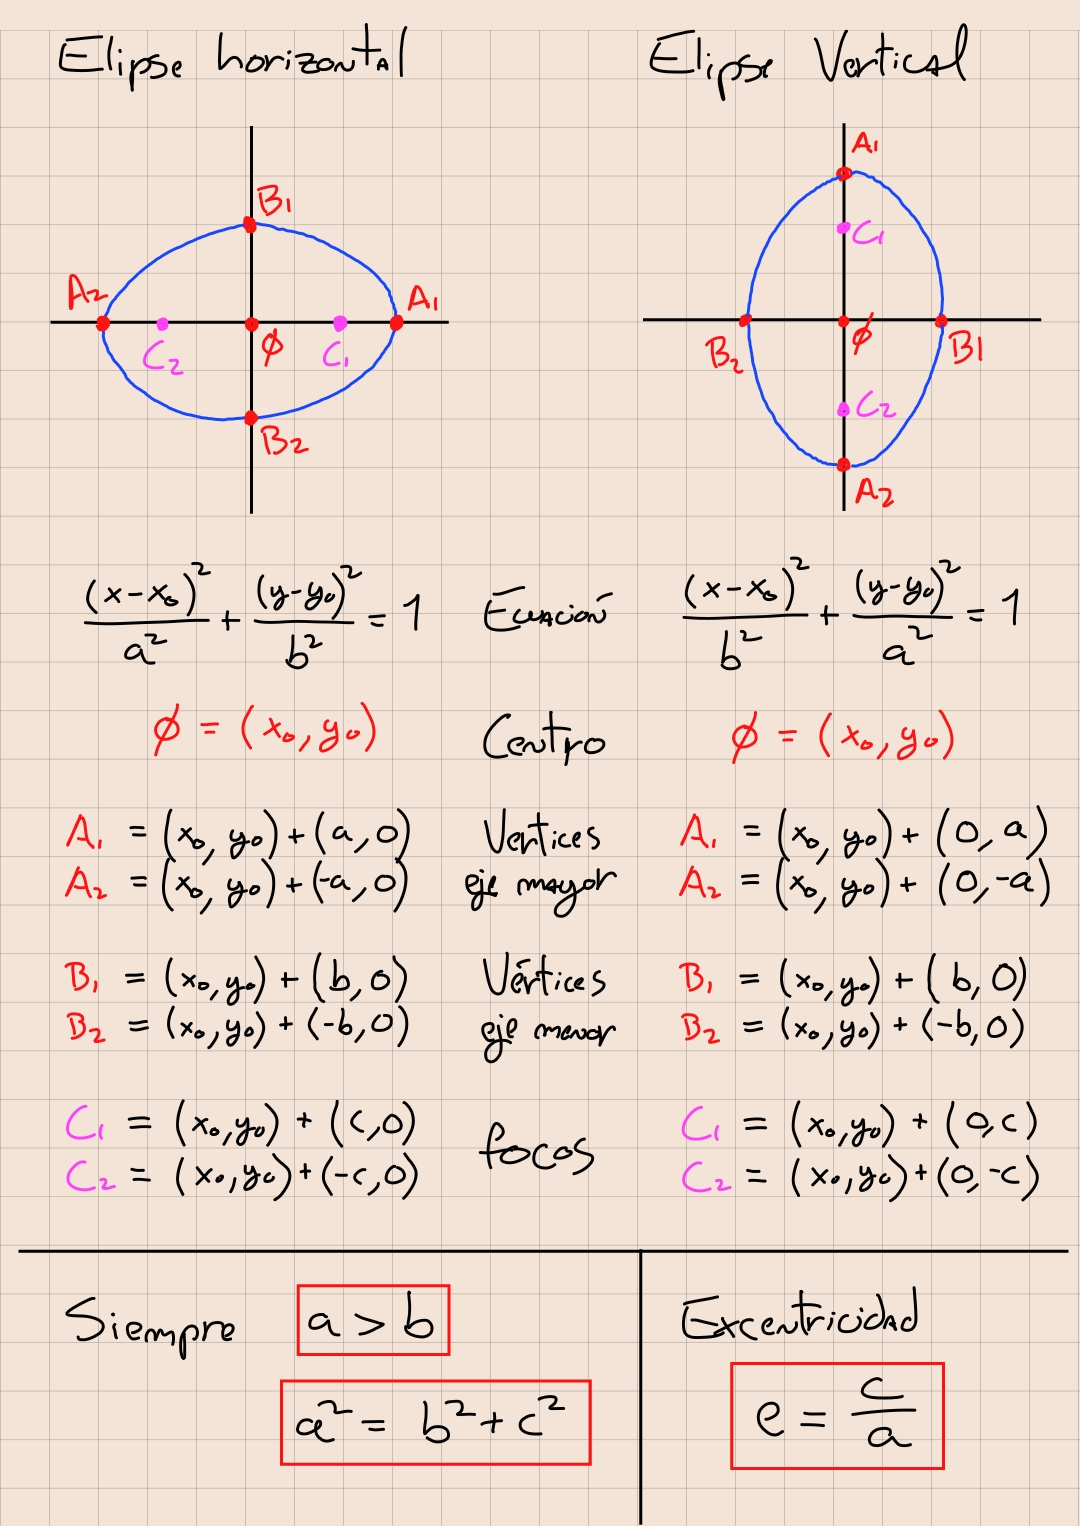 Elipse horizontal
Elipse Vertical
B₁
A₂
A₁
C₂
ϕ
C₁
B₂
A₁
C₁
B₂
ϕ
B₁
C₂
A₂
(x-x₀)²/a² + (y-y₀)²/b² = 1
Ecuación
(x-x₀)²/b² + (y-y₀)²/a² = 1
ϕ = (x₀, y₀)
Centro
ϕ = (x₀, y₀)
A₁ = (x₀, y₀) + (a, 0)
A₂ = (x₀, y₀) + (-a, 0)
Vertices
eje mayor
A₁ = (x₀, y₀) + (0, a)
A₂ = (x₀, y₀) + (0, -a)
B₁ = (x₀, y₀) + (b, 0)
B₂ = (x₀, y₀) + (-b, 0)
Vértices
eje menor
B₁ = (x₀, y₀) + (b, 0)
B₂ = (x₀, y₀) + (-b, 0)
C₁ = (x₀, y₀) + (c, 0)
C₂ = (x₀, y₀) + (-c, 0)
focos
C₁ = (x₀, y₀) + (0, c)
C₂ = (x₀, y₀) + (0, -c)
Siempre
a > b
a² = b² + c²
Excentricidad
e = c/a